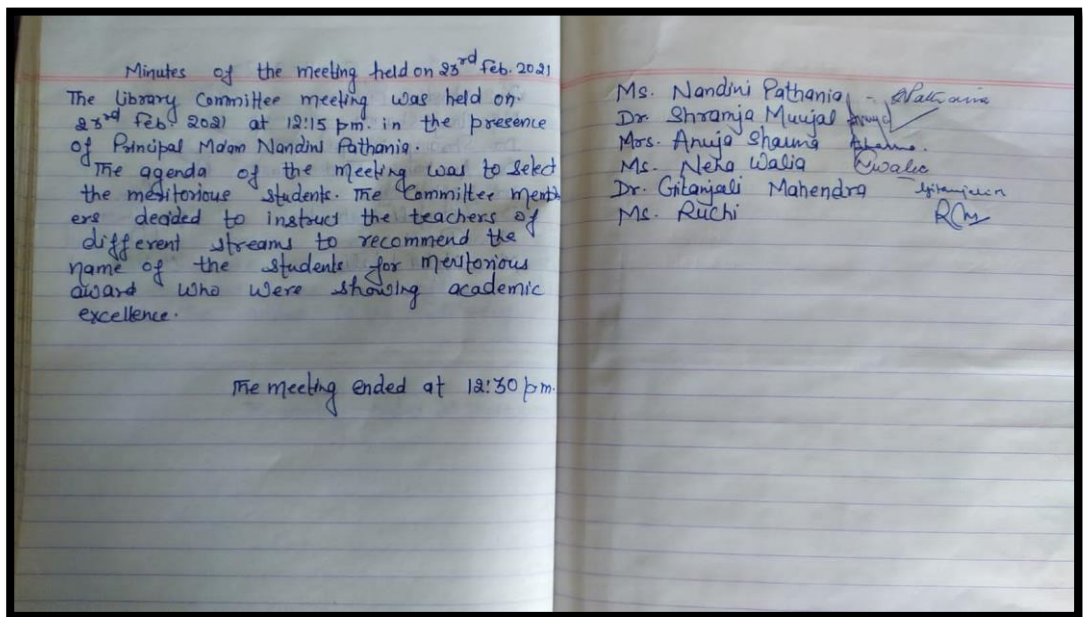 Minutes of the meeting held on 23rd Feb. 2021
The Library Committee meeting was held on
23rd Feb. 2021 at 12:15 pm. in the presence
of Principal Ma'am Nandini Pathania.
The agenda of the meeting was to select
the meritorious students. The Committee memb
ers decided to instruct the teachers of
different streams to recommend the
name of the students for meritorious
award who were showing academic
excellence.
The meeting ended at 12:30 pm.
Ms. Nandini Pathania - Pathania
Dr. Shranja Muujal
Mrs. Anuja Sharma
Ms. Neha Walia Walia
Dr. Gitanjali Mahendra Gitanjali
Ms. Ruchi